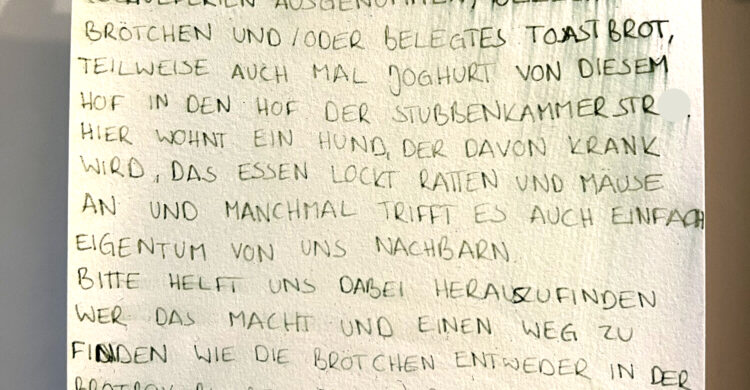 AUSGENOMMEN,
BRÖTCHEN UND/ODER BELEGTES TOASTBROT,
TEILWEISE AUCH MAL JOGHURT VON DIESEM
HOF IN DEN HOF DER STUBBENKAMMERSTR .
HIER WOHNT EIN HUND, DER DAVON KRANK
WIRD, DAS ESSEN LOCKT RATTEN UND MÄUSE
AN UND MANCHMAL TRIFFT ES AUCH EINFACH
EIGENTUM VON UNS NACHBARN.
BITTE HELFT UNS DABEI HERAUSZUFINDEN
WER DAS MACHT UND EINEN WEG ZU
FINDEN WIE DIE BRÖTCHEN ENTWEDER IN DER